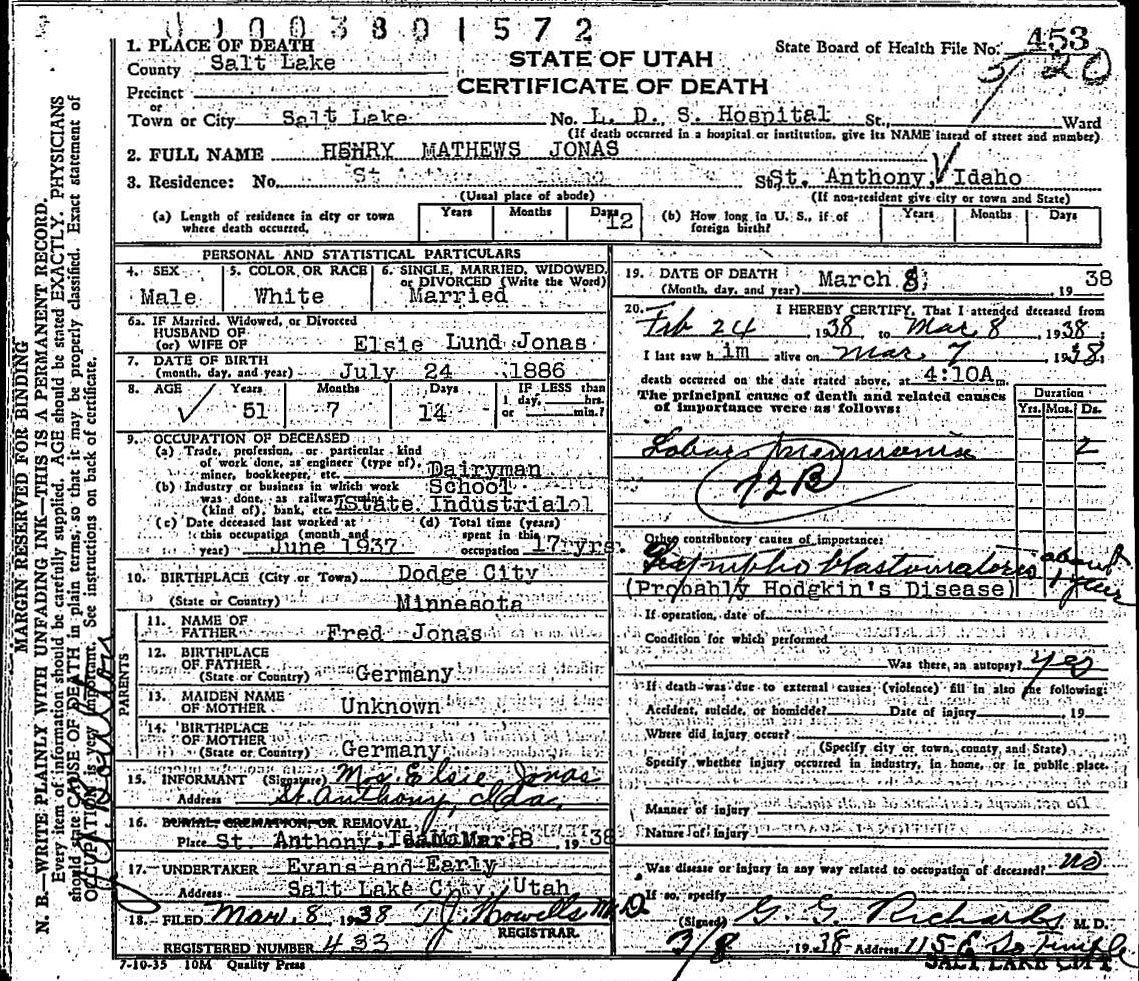 1003801572
State Board of Health File No. 453
5/20
STATE OF UTAH
CERTIFICATE OF DEATH
1. PLACE OF DEATH
County Salt Lake
Precinct
or
Town or City Salt Lake No. L. D. S. Hospital St., Ward
(If death occurred in a hospital or institution, give its NAME instead of street and number)
2. FULL NAME HENRY MATHEWS JONAS
3. Residence: No. St., St. Anthony, Idaho
(Usual place of abode) (If non-resident give city or town and State)
(a) Length of residence in city or town where death occurred. Years Months Days 12
(b) How long in U. S., if of foreign birth? Years Months Days
PERSONAL AND STATISTICAL PARTICULARS
4. SEX Male
5. COLOR OR RACE White
6. SINGLE, MARRIED, WIDOWED, or DIVORCED (Write the Word) Married
6a. IF Married, Widowed, or Divorced
HUSBAND OF
(or) WIFE OF Elsie Lund Jonas
7. DATE OF BIRTH
(month, day, and year) July 24 1886
8. AGE Years 51 Months 7 Days 14 IF LESS than 1 day, hrs. or min.?
9. OCCUPATION OF DECEASED
(a) Trade, profession, or particular kind
of work done, as engineer (type of),
miner, bookkeeper, etc. Dairyman
(b) Industry or business in which work School
was done, as railway,
(kind of), bank, etc. State Industrial
(c) Date deceased last worked at
this occupation (month and
year) June 1937
(d) Total time (years)
spent in this
occupation 17 yrs.
10. BIRTHPLACE (City or Town) Dodge City
(State or Country) Minnesota
PARENTS
11. NAME OF
FATHER Fred Jonas
12. BIRTHPLACE
OF FATHER
(State or Country) Germany
13. MAIDEN NAME
OF MOTHER Unknown
14. BIRTHPLACE
OF MOTHER
(State or Country) Germany
15. INFORMANT (Signature) Mrs. Elsie Jonas
Address St. Anthony, Ida.
16. BURIAL, CREMATION, OR REMOVAL
Place St. Anthony, Mar. 8 1938
17. UNDERTAKER Evans and Early
Address Salt Lake City, Utah
18. FILED Mar. 8, 1938 T J Howells M.D.
REGISTRAR.
REGISTERED NUMBER 433
7-10-35 10M Quality Press
19. DATE OF DEATH
(Month, day, and year) March 8, 1938
20. I HEREBY CERTIFY, That I attended deceased from
Feb 24 1938 to Mar 8 1938;
I last saw him alive on Mar. 7 1938;
death occurred on the date stated above, at 4:10A m.
The principal cause of death and related causes
of importance were as follows:
Duration
Yrs. Mos. Ds.
Lobar pneumonia 2
Other contributory causes of importance:
about
1 year
(Probably Hodgkin's Disease)
If operation, date of
Condition for which performed
Was there an autopsy? yes
If death was due to external causes (violence) fill in also the following:
Accident, suicide, or homicide? Date of injury 19
Where did injury occur?
(Specify city or town, county, and State)
Specify whether injury occurred in industry, in home, or in public place.
Manner of injury
Nature of injury
Was disease or injury in any way related to occupation of deceased? no
If so, specify
(Signed) G. G. Richards M. D.
3/8 1938 Address 115 E So Temple
SALT LAKE CITY
MARGIN RESERVED FOR BINDING
N. B.—WRITE PLAINLY WITH UNFADING INK—THIS IS A PERMANENT RECORD.
Every item of information should be carefully supplied. AGE should be stated EXACTLY. PHYSICIANS
should state CAUSE OF DEATH in plain terms, so that it may be properly classified. Exact statement of
OCCUPATION is very important. See instructions on back of certificate.